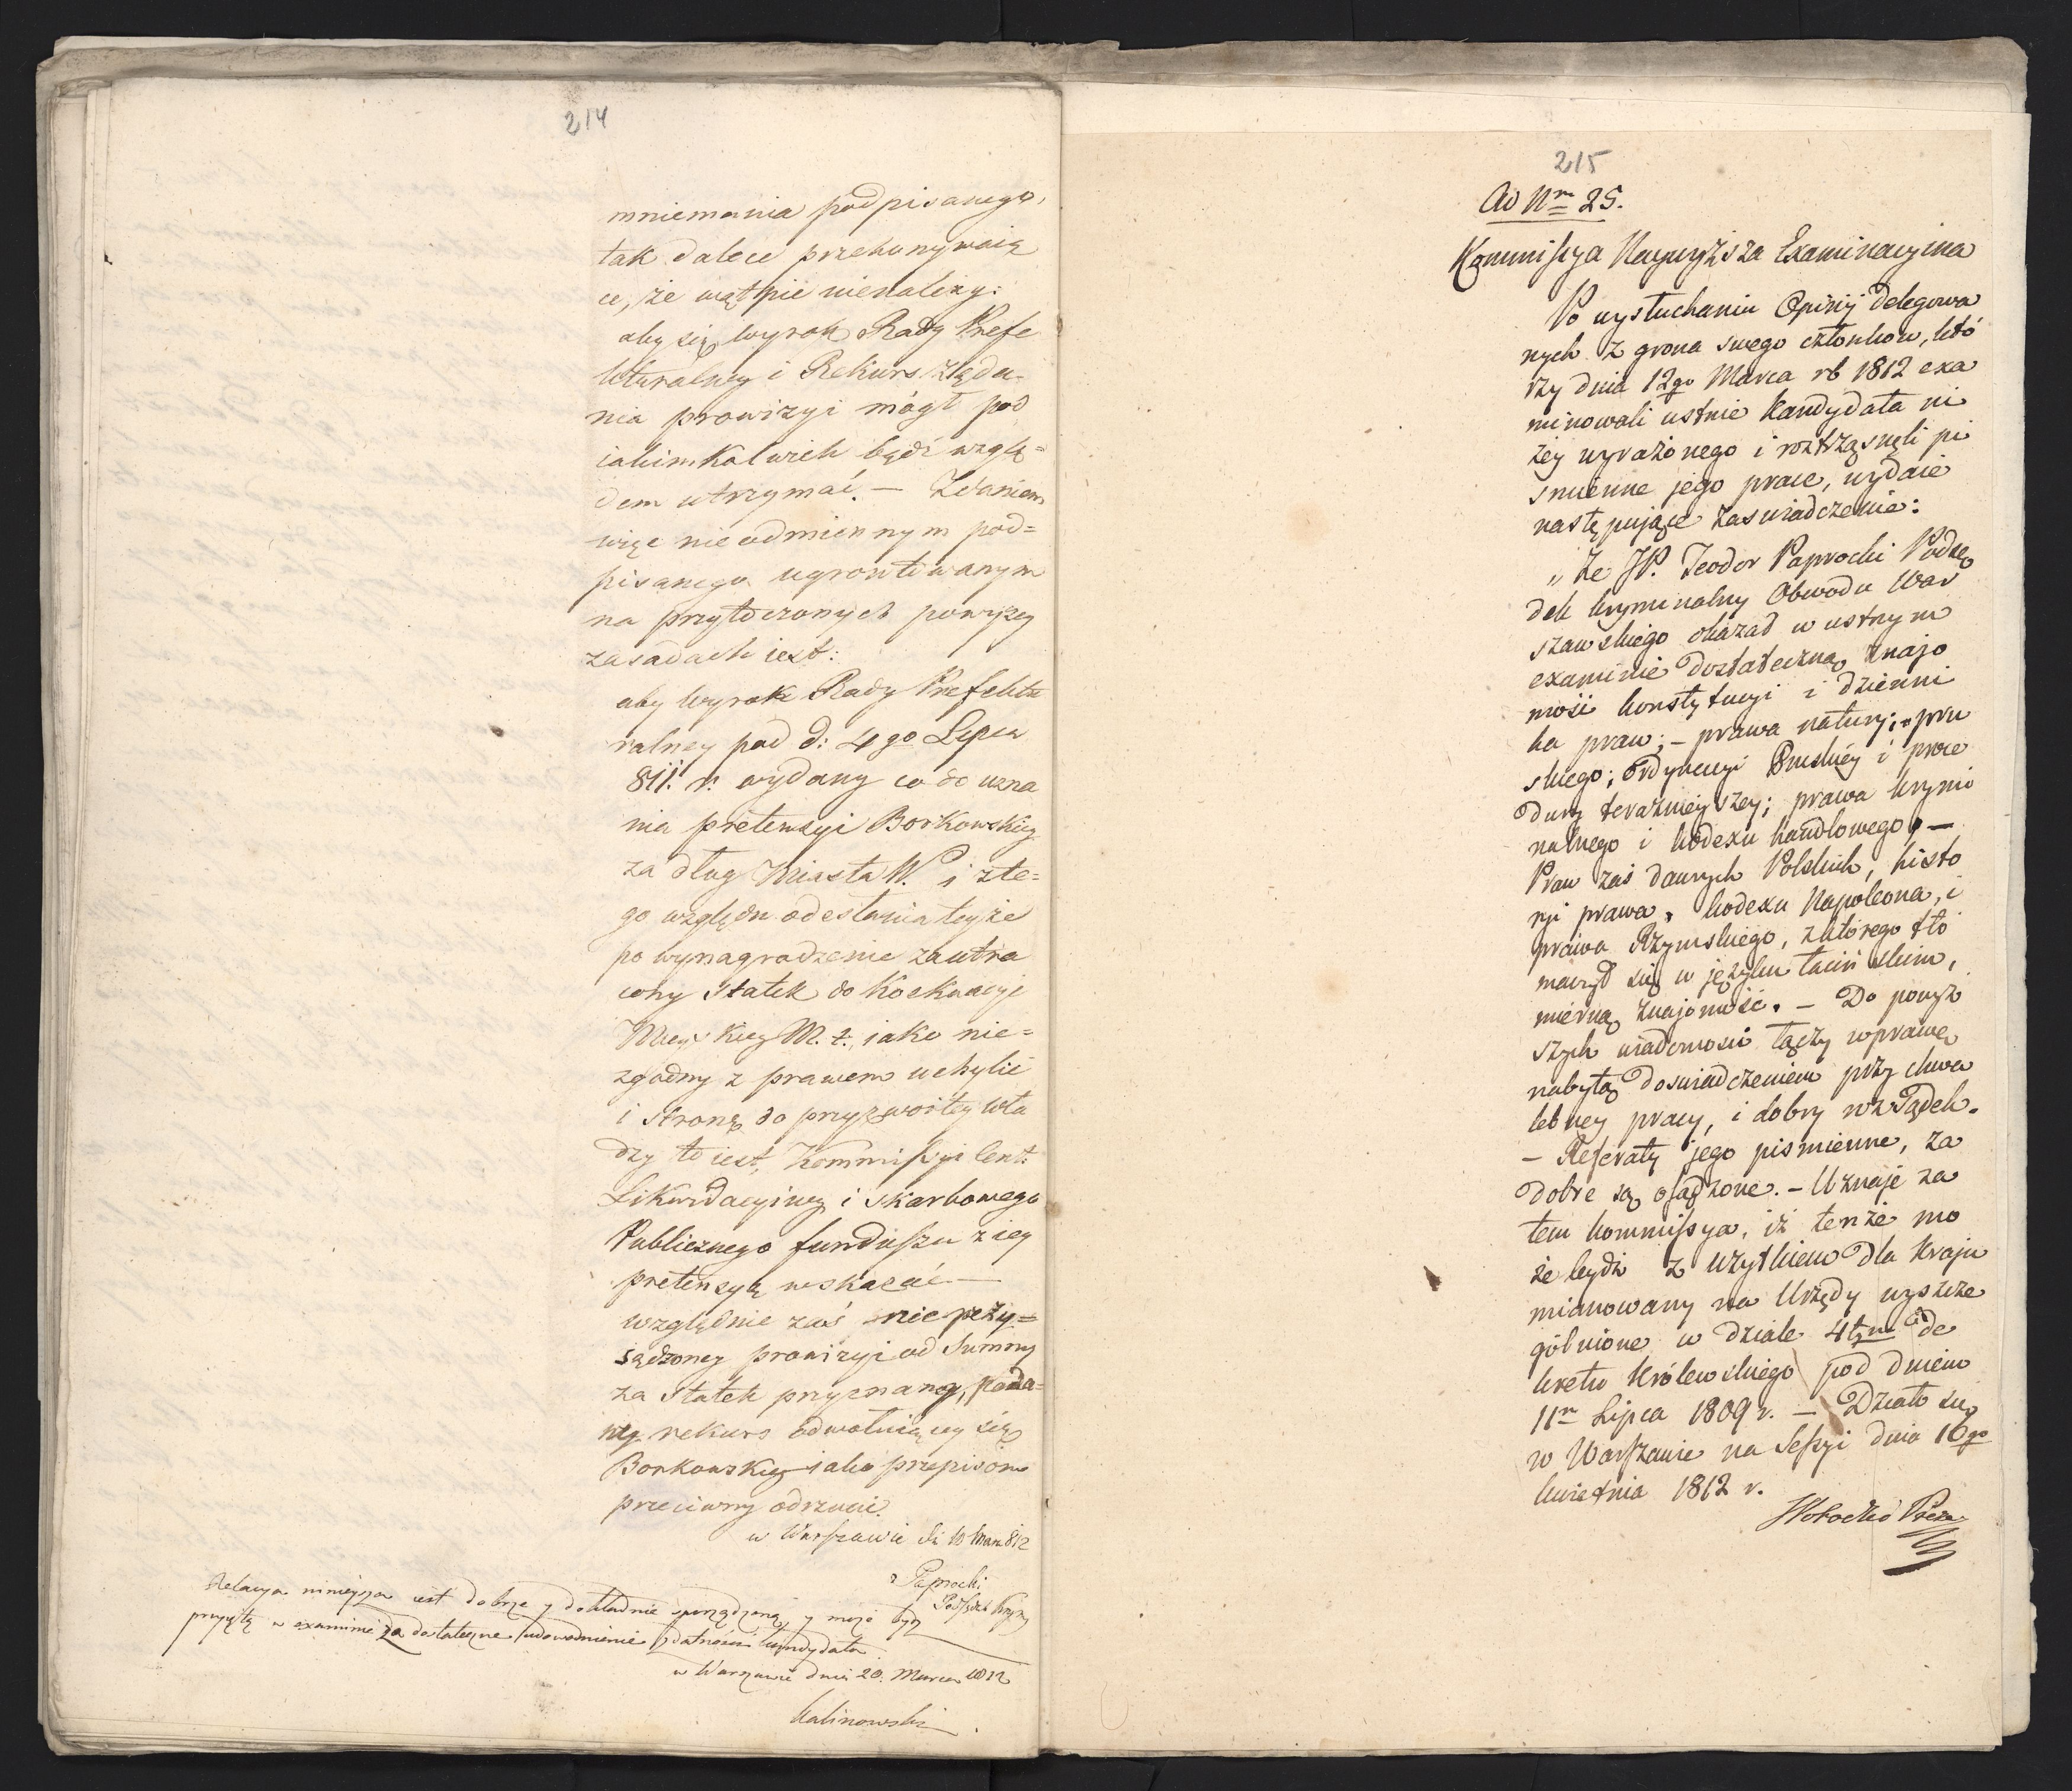 214
mniemania podpisanego,
tak dalece przekonywaią
ce, że wątpić nienależy:
aby się wyrok Rady Prefe
kturalney i Rekurs żąda-
nia prowizyi mógł pod
iakimkolwiek bądź wzglę=
dem utrzymać. — Zdaniem
więc nieodmiennym pod=
pisanego ugrontowanym
na przytoczonych powyżey
zasadach iest:
aby Wyrok Rady Prefektu
ralney pod d: 4go Lipca
811. r. wydany co do uzna
nia pretensyi Borkowskiey
za dług Miasta W. i z te=
go względu odesłania teyże
po wynagrodzenie za utra
cony Statek do
Mieyskiey M. t., iako nie=
zgodny z prawem uchylić
i Stronę do przyzwoitey Wła
dzy to iest, Kommissyi Cent.
Likwidacyiney i skarbowego
Publicznego funduszu z iey
pretensyą wskazać —
względnie zaś nieprzy=
sądzoney prowizyi od Summy
za Statek przyznaney, poda=
ny rekurs odwołuiącey się
Borkowskiey iako przepisom
przeciwny odrzucić.
w Warszawie d. 10 Marca 812
Paprocki
Podsędek Krym
Relacya ninieysza iest dobrze y dokładnie sporządzoną, y może być
przyjętą w examinie za dostateczne udowodnienie zdatności kandydata
w Warszawie dnia 20. Marca 1812
Kalinowski
215
Ad Nrm 25.
Kommissya Naywyższa Examinacyina
Po wysłuchaniu Opinij delegowa
nych z grona swego członków, któ
rzy dnia 12go Marca rb 1812 exa
minowali ustnie Kandydata ni
żey wyrażonego i roztrząsnęli pi
smienne jego prace, wydaie
następujące zaswiadczenie:
„ Że JP. Teodor Paprocki Podsę
dek kryminalny Obwodu War
szawskiego okazał w ustnym
examinie dostateczną znajo
mość konstytucyi i dzienni
ka praw; – prawa natury; – pru
skiego; Ordynacyi Pruskiey i proce
dury teraźnieyszey; prawa krymi
nalnego i kodexu handlowego, —
Praw zaś dawnych Polskich, histo
ryi prawa, kodexu Napoleona, i
prawa Rzymskiego, z którego tłó
maczył się w języku łacińskim,
mierną znajomość. – Do powyż
szych wiadomości łączy wprawę
nabytą doswiadczeniem przy chwa
lebney pracy, i dobry rozsądek.
– Referaty jego pismienne, za
dobre są osądzone. – Uznaje za
tem kommissya, iż tenże mo
że bydź z użytkiem dla Kraju
mianowany na Urzędy wyszcze
gólnione w dziale 4tym de
kretu Królewskiego pod dniem
11m Lipca 1809 r. — Działo się
w Warszawie na Sessyi dnia 16go
kwietnia 1812 r.